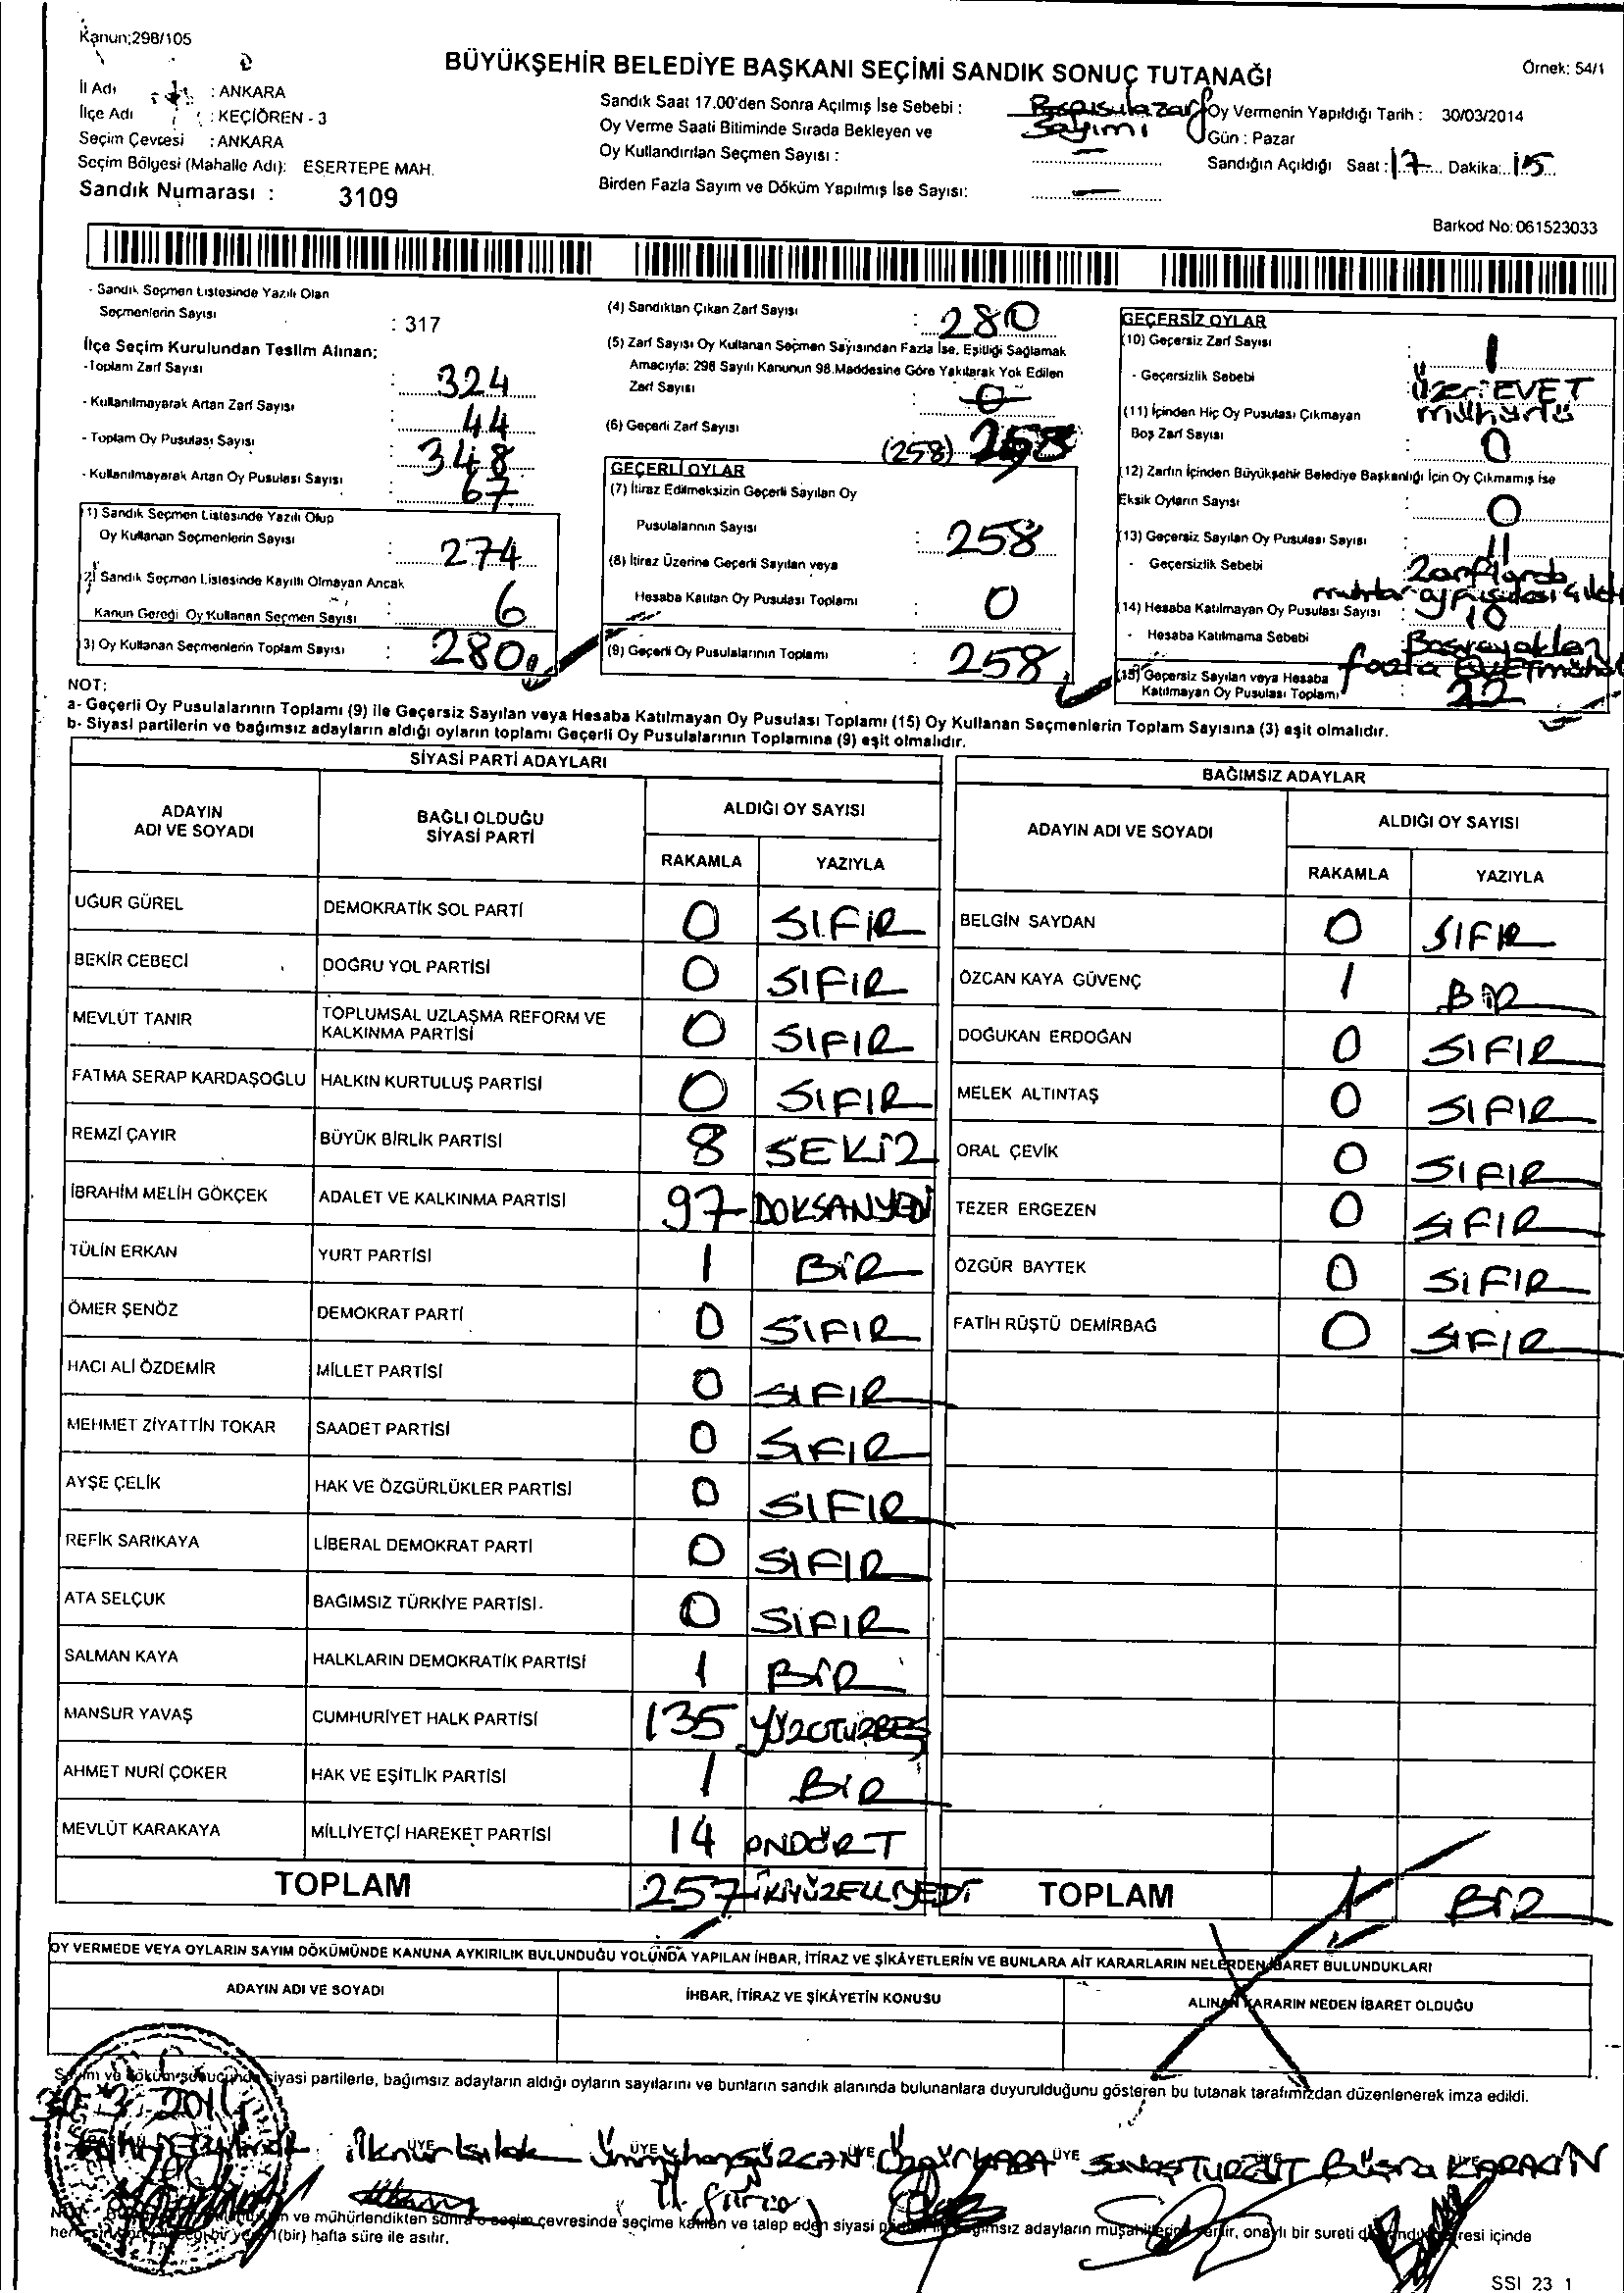 Kanun;298/105
BÜYÜKŞEHİR BELEDİYE BAŞKANI SEÇİMİ SANDIK SONUÇ TUTANAĞI
Örnek: 54/1
İl Adı : ANKARA
İlçe Adı : KEÇİÖREN - 3
Seçim Çevresi : ANKARA
Seçim Bölgesi (Mahalle Adı): ESERTEPE MAH.
Sandık Numarası : 3109
Sandık Saat 17.00'den Sonra Açılmış İse Sebebi : Boş pusula zarf Sayımı
Oy Verme Saati Bitiminde Sırada Bekleyen ve
Oy Kullandırılan Seçmen Sayısı : —
Birden Fazla Sayım ve Döküm Yapılmış İse Sayısı: —
Oy Vermenin Yapıldığı Tarih : 30/03/2014
Gün : Pazar
Sandığın Açıldığı Saat : 17 Dakika: 15
Barkod No: 061523033
- Sandık Seçmen Listesinde Yazılı Olan
Seçmenlerin Sayısı : 317
İlçe Seçim Kurulundan Teslim Alınan;
-Toplam Zarf Sayısı : 324
- Kullanılmayarak Artan Zarf Sayısı : 44
- Toplam Oy Pusulası Sayısı : 348
- Kullanılmayarak Artan Oy Pusulası Sayısı : 67
1) Sandık Seçmen Listesinde Yazılı Olup
Oy Kullanan Seçmenlerin Sayısı : 274
2) Sandık Seçmen Listesinde Kayıtlı Olmayan Ancak
Kanun Gereği Oy Kullanan Seçmen Sayısı : 6
3) Oy Kullanan Seçmenlerin Toplam Sayısı : 280
(4) Sandıktan Çıkan Zarf Sayısı : 280
(5) Zarf Sayısı Oy Kullanan Seçmen Sayısından Fazla İse, Eşitliği Sağlamak
Amacıyla: 298 Sayılı Kanunun 98.Maddesine Göre Yakılarak Yok Edilen
Zarf Sayısı : 0
(6) Geçerli Zarf Sayısı : (258) 258
GEÇERLİ OYLAR
(7) İtiraz Edilmeksizin Geçerli Sayılan Oy
Pusulalarının Sayısı : 258
(8) İtiraz Üzerine Geçerli Sayılan veya
Hesaba Katılan Oy Pusulası Toplamı : 0
(9) Geçerli Oy Pusulalarının Toplamı : 258
GEÇERSİZ OYLAR
(10) Geçersiz Zarf Sayısı : 1
- Geçersizlik Sebebi : Üzeri EVET mühürlü
(11) İçinden Hiç Oy Pusulası Çıkmayan
Boş Zarf Sayısı : 0
(12) Zarfın İçinden Büyükşehir Belediye Başkanlığı İçin Oy Çıkmamış İse
Eksik Oyların Sayısı : 0
(13) Geçersiz Sayılan Oy Pusulası Sayısı : 11
- Geçersizlik Sebebi : Zarflarda muhtar oy pusulası
(14) Hesaba Katılmayan Oy Pusulası Sayısı : 10
- Hesaba Katılmama Sebebi : fazla EVET
(15) Geçersiz Sayılan veya Hesaba
Katılmayan Oy Pusulası Toplamı : 22
NOT:
a- Geçerli Oy Pusulalarının Toplamı (9) ile Geçersiz Sayılan veya Hesaba Katılmayan Oy Pusulası Toplamı (15) Oy Kullanan Seçmenlerin Toplam Sayısına (3) eşit olmalıdır.
b- Siyasi partilerin ve bağımsız adayların aldığı oyların toplamı Geçerli Oy Pusulalarının Toplamına (9) eşit olmalıdır.
SİYASİ PARTİ ADAYLARI
ADAYIN ADI VE SOYADI BAĞLI OLDUĞU SİYASİ PARTİ ALDIĞI OY SAYISI
RAKAMLA YAZIYLA
UĞUR GÜREL DEMOKRATİK SOL PARTİ 0 SIFIR
BEKİR CEBECİ DOĞRU YOL PARTİSİ 0 SIFIR
MEVLÜT TANIR TOPLUMSAL UZLAŞMA REFORM VE KALKINMA PARTİSİ 0 SIFIR
FATMA SERAP KARDAŞOĞLU HALKIN KURTULUŞ PARTİSİ 0 SIFIR
REMZİ ÇAYIR BÜYÜK BİRLİK PARTİSİ 8 SEKİZ
İBRAHİM MELİH GÖKÇEK ADALET VE KALKINMA PARTİSİ 97 DOKSANYEDİ
TÜLİN ERKAN YURT PARTİSİ 1 BİR
ÖMER ŞENÖZ DEMOKRAT PARTİ 0 SIFIR
HACI ALİ ÖZDEMİR MİLLET PARTİSİ 0 SIFIR
MEHMET ZİYATTİN TOKAR SAADET PARTİSİ 0 SIFIR
AYŞE ÇELİK HAK VE ÖZGÜRLÜKLER PARTİSİ 0 SIFIR
REFİK SARIKAYA LİBERAL DEMOKRAT PARTİ 0 SIFIR
ATA SELÇUK BAĞIMSIZ TÜRKİYE PARTİSİ. 0 SIFIR
SALMAN KAYA HALKLARIN DEMOKRATİK PARTİSİ 1 BİR
MANSUR YAVAŞ CUMHURİYET HALK PARTİSİ 135 YÜZOTUZBEŞ
AHMET NURİ ÇOKER HAK VE EŞİTLİK PARTİSİ 1 BİR
MEVLÜT KARAKAYA MİLLİYETÇİ HAREKET PARTİSİ 14 ONDÖRT
TOPLAM 257 İKİYÜZELLİYEDİ
BAĞIMSIZ ADAYLAR
ADAYIN ADI VE SOYADI ALDIĞI OY SAYISI
RAKAMLA YAZIYLA
BELGİN SAYDAN 0 SIFIR
ÖZCAN KAYA GÜVENÇ 1 BİR
DOĞUKAN ERDOĞAN 0 SIFIR
MELEK ALTINTAŞ 0 SIFIR
ORAL ÇEVİK 0 SIFIR
TEZER ERGEZEN 0 SIFIR
ÖZGÜR BAYTEK 0 SIFIR
FATİH RÜŞTÜ DEMİRBAĞ 0 SIFIR
TOPLAM 1 BİR
OY VERMEDE VEYA OYLARIN SAYIM DÖKÜMÜNDE KANUNA AYKIRILIK BULUNDUĞU YOLUNDA YAPILAN İHBAR, İTİRAZ VE ŞİKÂYETLERİN VE BUNLARA AİT KARARLARIN NELERDEN İBARET BULUNDUKLARI
ADAYIN ADI VE SOYADI İHBAR, İTİRAZ VE ŞİKÂYETİN KONUSU ALINAN KARARIN NEDEN İBARET OLDUĞU
Sayım ve döküm sonucunda siyasi partilerle, bağımsız adayların aldığı oyların sayılarını ve bunların sandık alanında bulunanlara duyurulduğunu gösteren bu tutanak tarafımızdan düzenlenerek imza edildi.
30-3-2014
ÜYE ÜYE ÜYE ÜYE
ve mühürlendikten sonra o seçim çevresinde seçime katılan ve talep eden siyasi bağımsız adayların müşahitlerine verilir, onaylı bir sureti içinde
1(bir) hafta süre ile asılır.
SSI 23 1